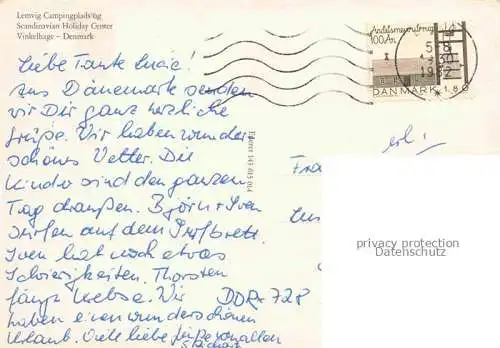 Lemvig Campingplads og
Scandinavian Holiday Center
Vinkelhage – Denmark
Liebe Tante Lucie!
Aus Dänemark senden
wir Dir ganz herzliche
Grüße. Wir haben wunder
schönes Wetter. Die
Kinder sind den ganzen
Tag draußen. Björn + Sven
surfen auf dem Surfbrett.
Sven hat noch etwas
Schwierigkeiten. Thorsten
fängt Krebse. Wir
haben einen wunderschönen
Urlaub. Viele liebe
Andelsmejeribrug
100 År
DANMARK 1.80
5-8
1982
erl.
Fra
DDR-728
privacy protection
Datenschutz